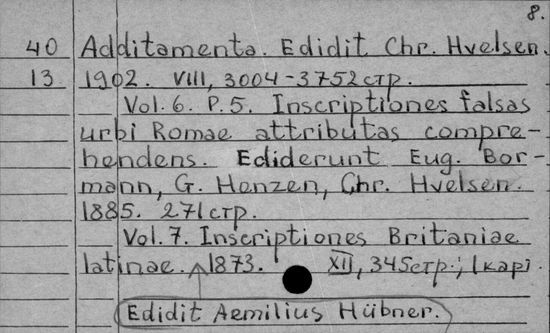 8.
40 Additamenta. Edidit Chr. Hvelsen.
13 1902. VIII, 3004-3752стр.
Vol. 6. P. 5. Inscriptiones falsas
urbi Romae attributas compre-
hendens. Ediderunt Eug. Bor-
mann, G. Henzen, Chr. Hvelsen.
1885. 271стр.
Vol. 7. Inscriptiones Britaniae
latinae. 1873. XII, 345стр.; 1карт.
Edidit Aemilius Hübner.